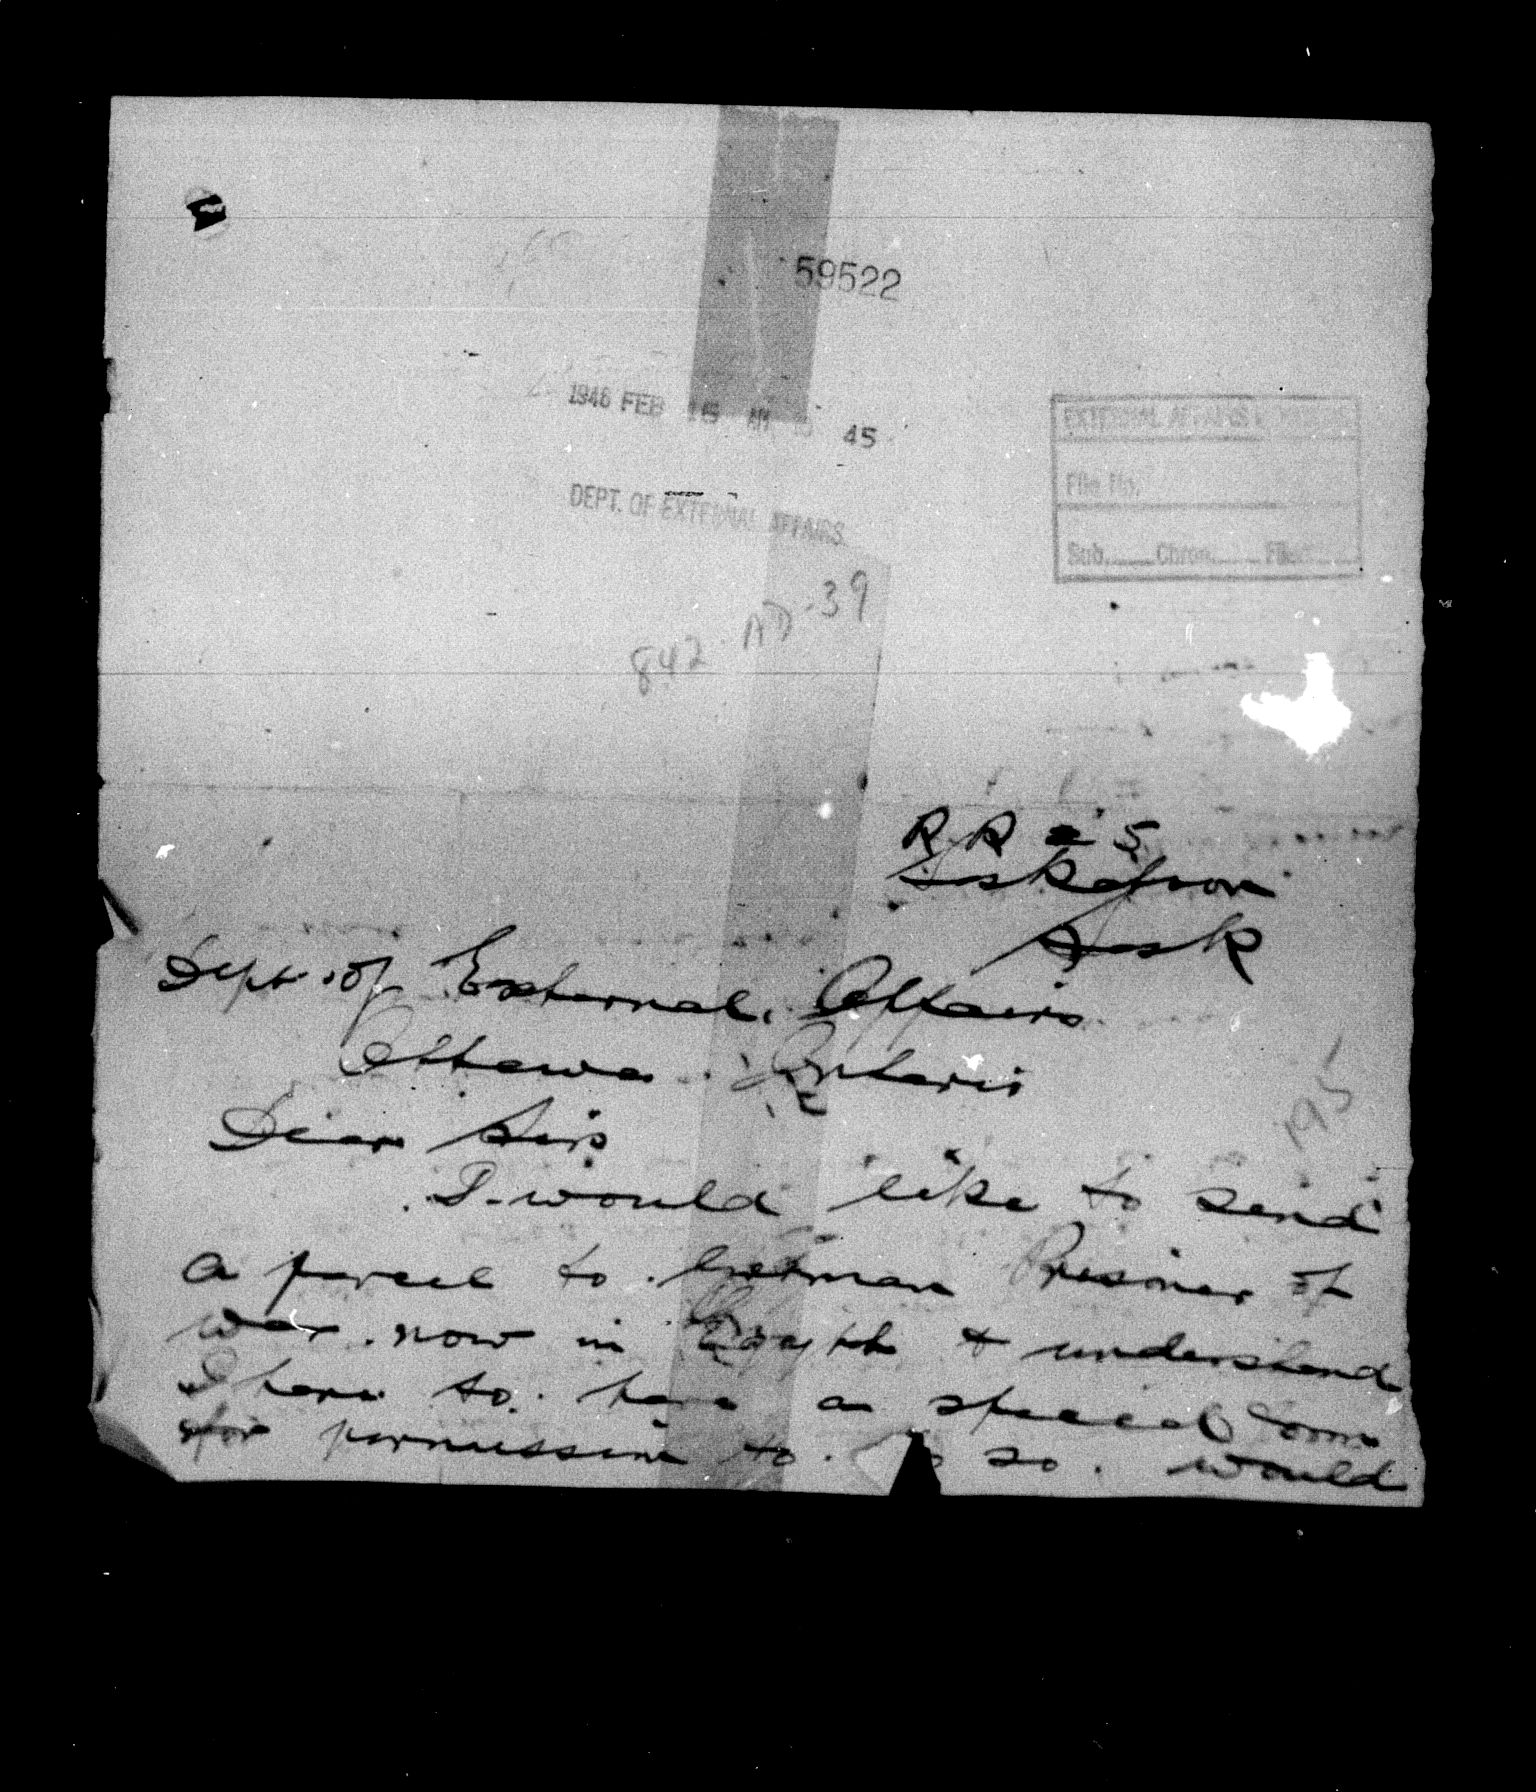 59522
1946 FEB 15 AM 45
DEPT. OF EXTERNAL AFFAIRS.
EXTERNAL AFFAIRS
File No.
Sub. Chron. Filed
842-AD-39
R R 5
Saskatoon
Sask
Dept. of External Affairs
Ottawa Ontario
195
Dear Sir
I would like to send
a parcel to German Prisoner of
war now in Egypt & understand
I have to have a special form
for permission to so. would